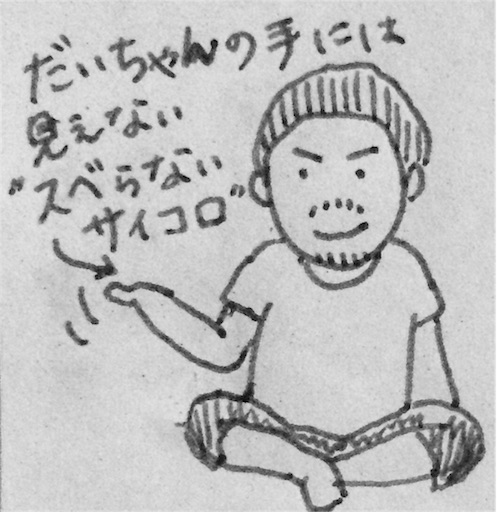 だいちゃんの手には
見えない
"スベらない
サイコロ"